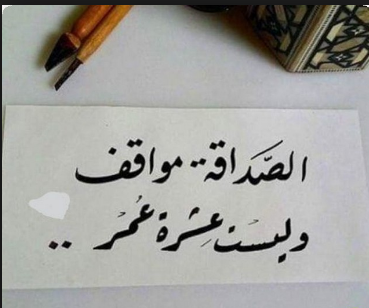 الصَّدَاقة.. مواقف
وليست عِشرة عُمْر ..